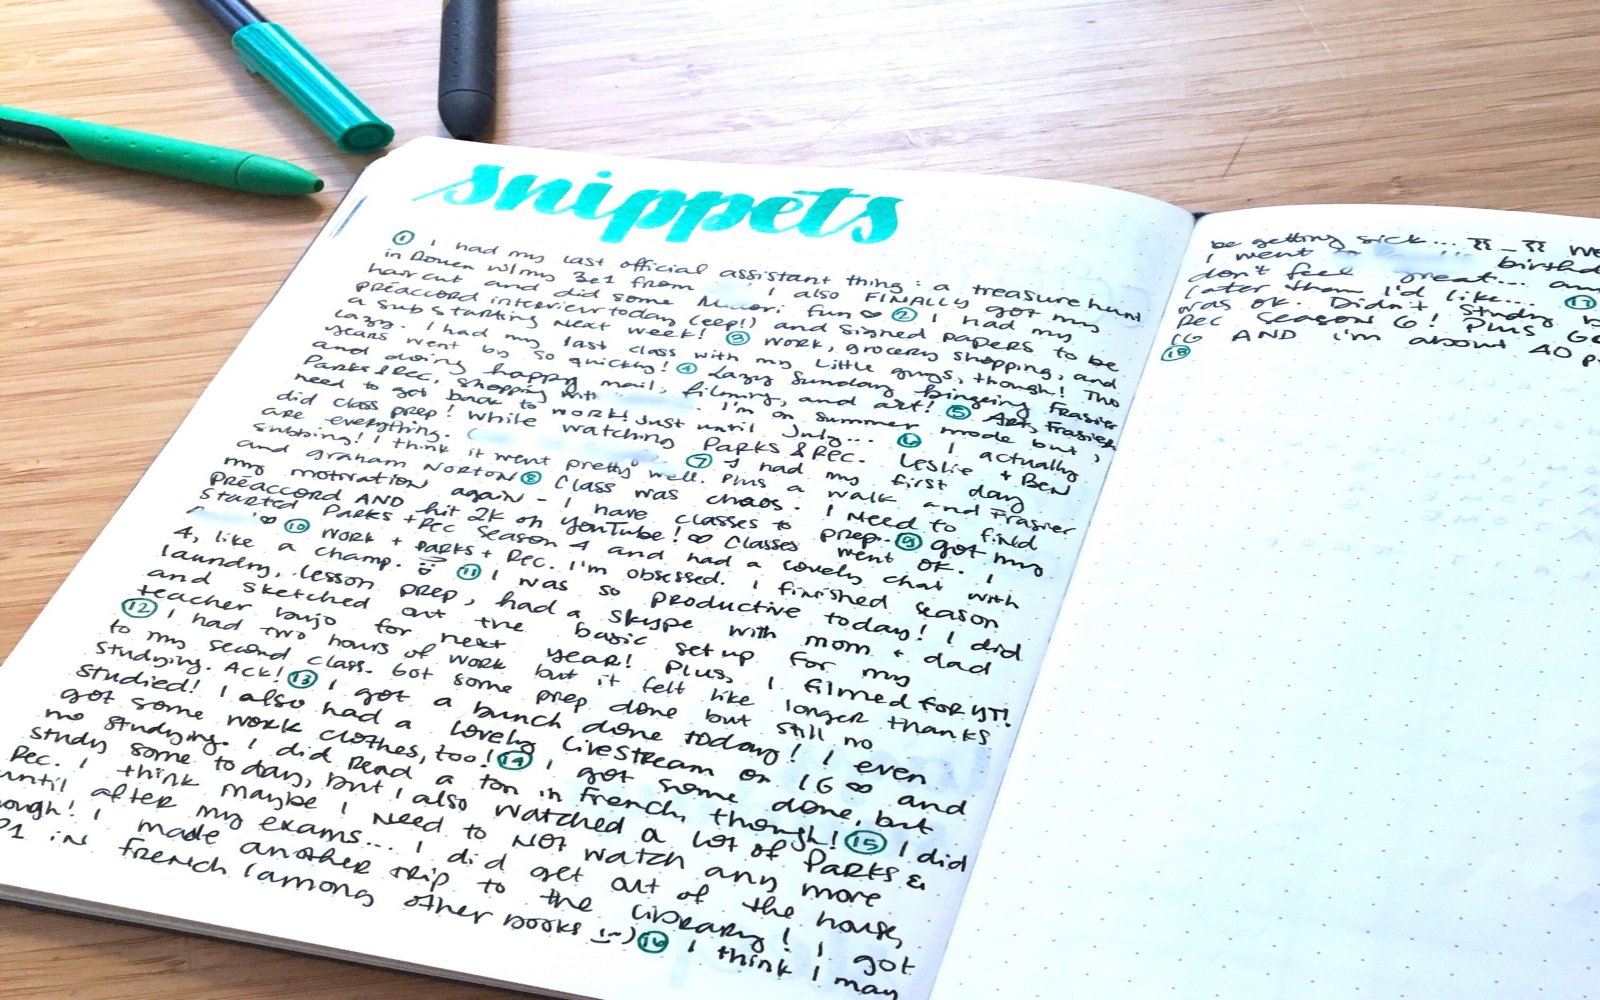 snippets
① I had my last official assistant thing: a treasure hunt
in Rouen w/ my 3e1 from I also FINALLY got my
hair cut and did some Midori fun ∞ ② I had my
préaccord interview today (eep!) and signed papers to be
a sub starting next week! ③ Work, grocery shopping, and
lazy. I had my last class with my little guys, though! Two
years went by so quickly! ④ Lazy Sunday bingeing Frasier
and doing happy mail, filming, and art! ⑤ Art, Frasier,
Parks & Rec, shopping with I'm on summer mode but I
need to get back to work! Just until July... ⑥ I actually
did class prep! While watching Parks & Rec. Leslie + Ben
are everything. ⑦ I had my first day
subbing! I think it went pretty well. Plus a walk and Frasier
and Graham Norton ⑧ Class was chaos. I need to find
my motivation again - I have classes to prep. ⑨ Got my
préaccord AND hit 2K on YouTube! ∞ Classes went ok. I
started Parks + Rec season 4 and had a lovely chat with
∞ ⑩ Work + Parks + Rec. I'm obsessed. I finished season
4, like a champ. ⑪ I was so productive today! I did
laundry, lesson prep, had a Skype with mom + dad
and sketched out the basic set up for my
teacher bujo for next year! Plus, I filmed for YT!
⑫ I had two hours of work but it felt like longer thanks
to my second class. Got some prep done but still no
studying. Ack! ⑬ I got a bunch done today! I even
studied! I also had a lovely livestream on IG ∞ and
got some work clothes, too! ⑭ I got some done, but
no studying. I did read a ton in French, though! ⑮ I did
study some today, but I also watched a lot of Parks &
Rec. I think maybe I need to NOT watch any more
until after my exams... I did get out of the house,
ough! I made another trip to the library! I got
P1 in French (among other books :~) ⑯ I think I may
be getting sick...
I went birthd
don't feel great... an
later than I'd like... ⑰
was ok. Didn't study
Rec season 6! Plus
IG AND I'm about 40 p
⑱